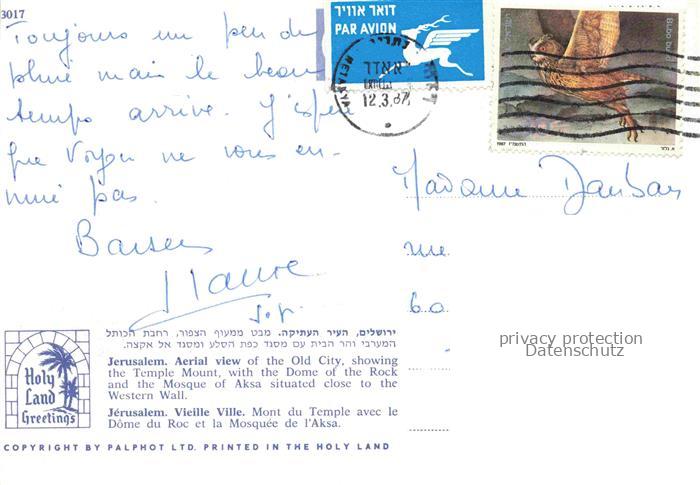 3017
Toujours un peu de
pluie mais le beau
temps arrive. J'espère
que Voyou ne vous en-
nuie pas.
Baisers
דואר אוויר
PAR AVION
נתניה
NETANYA
12.3.87
ישראל
Bubo bubo
1987
Madame
privacy protection
Datenschutz
ירושלים, העיר העתיקה. מבט ממעוף הצפור, רחבת הכותל
המערבי והר הבית עם מסגד כפת הסלע ומסגד אל אקצה.
Jerusalem. Aerial view of the Old City, showing
the Temple Mount, with the Dome of the Rock
and the Mosque of Aksa situated close to the
Western Wall.
Jérusalem. Vieille Ville. Mont du Temple avec le
Dôme du Roc et la Mosquée de l'Aksa.
Holy
Land
Greetings
COPYRIGHT BY PALPHOT LTD. PRINTED IN THE HOLY LAND